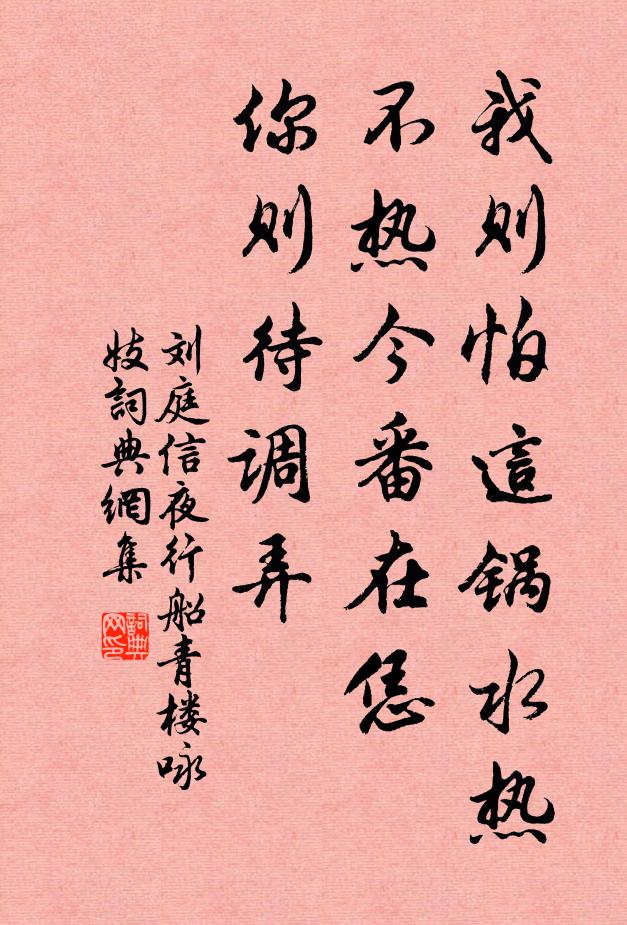 我则怕這锅水热
不热今番在恁
你则待调弄
刘庭信夜行船青楼咏
妓詞典網集
詞典
网印